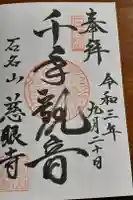 奉拝
令和三年
九月二十日
千手観音
石名山
慈眼寺